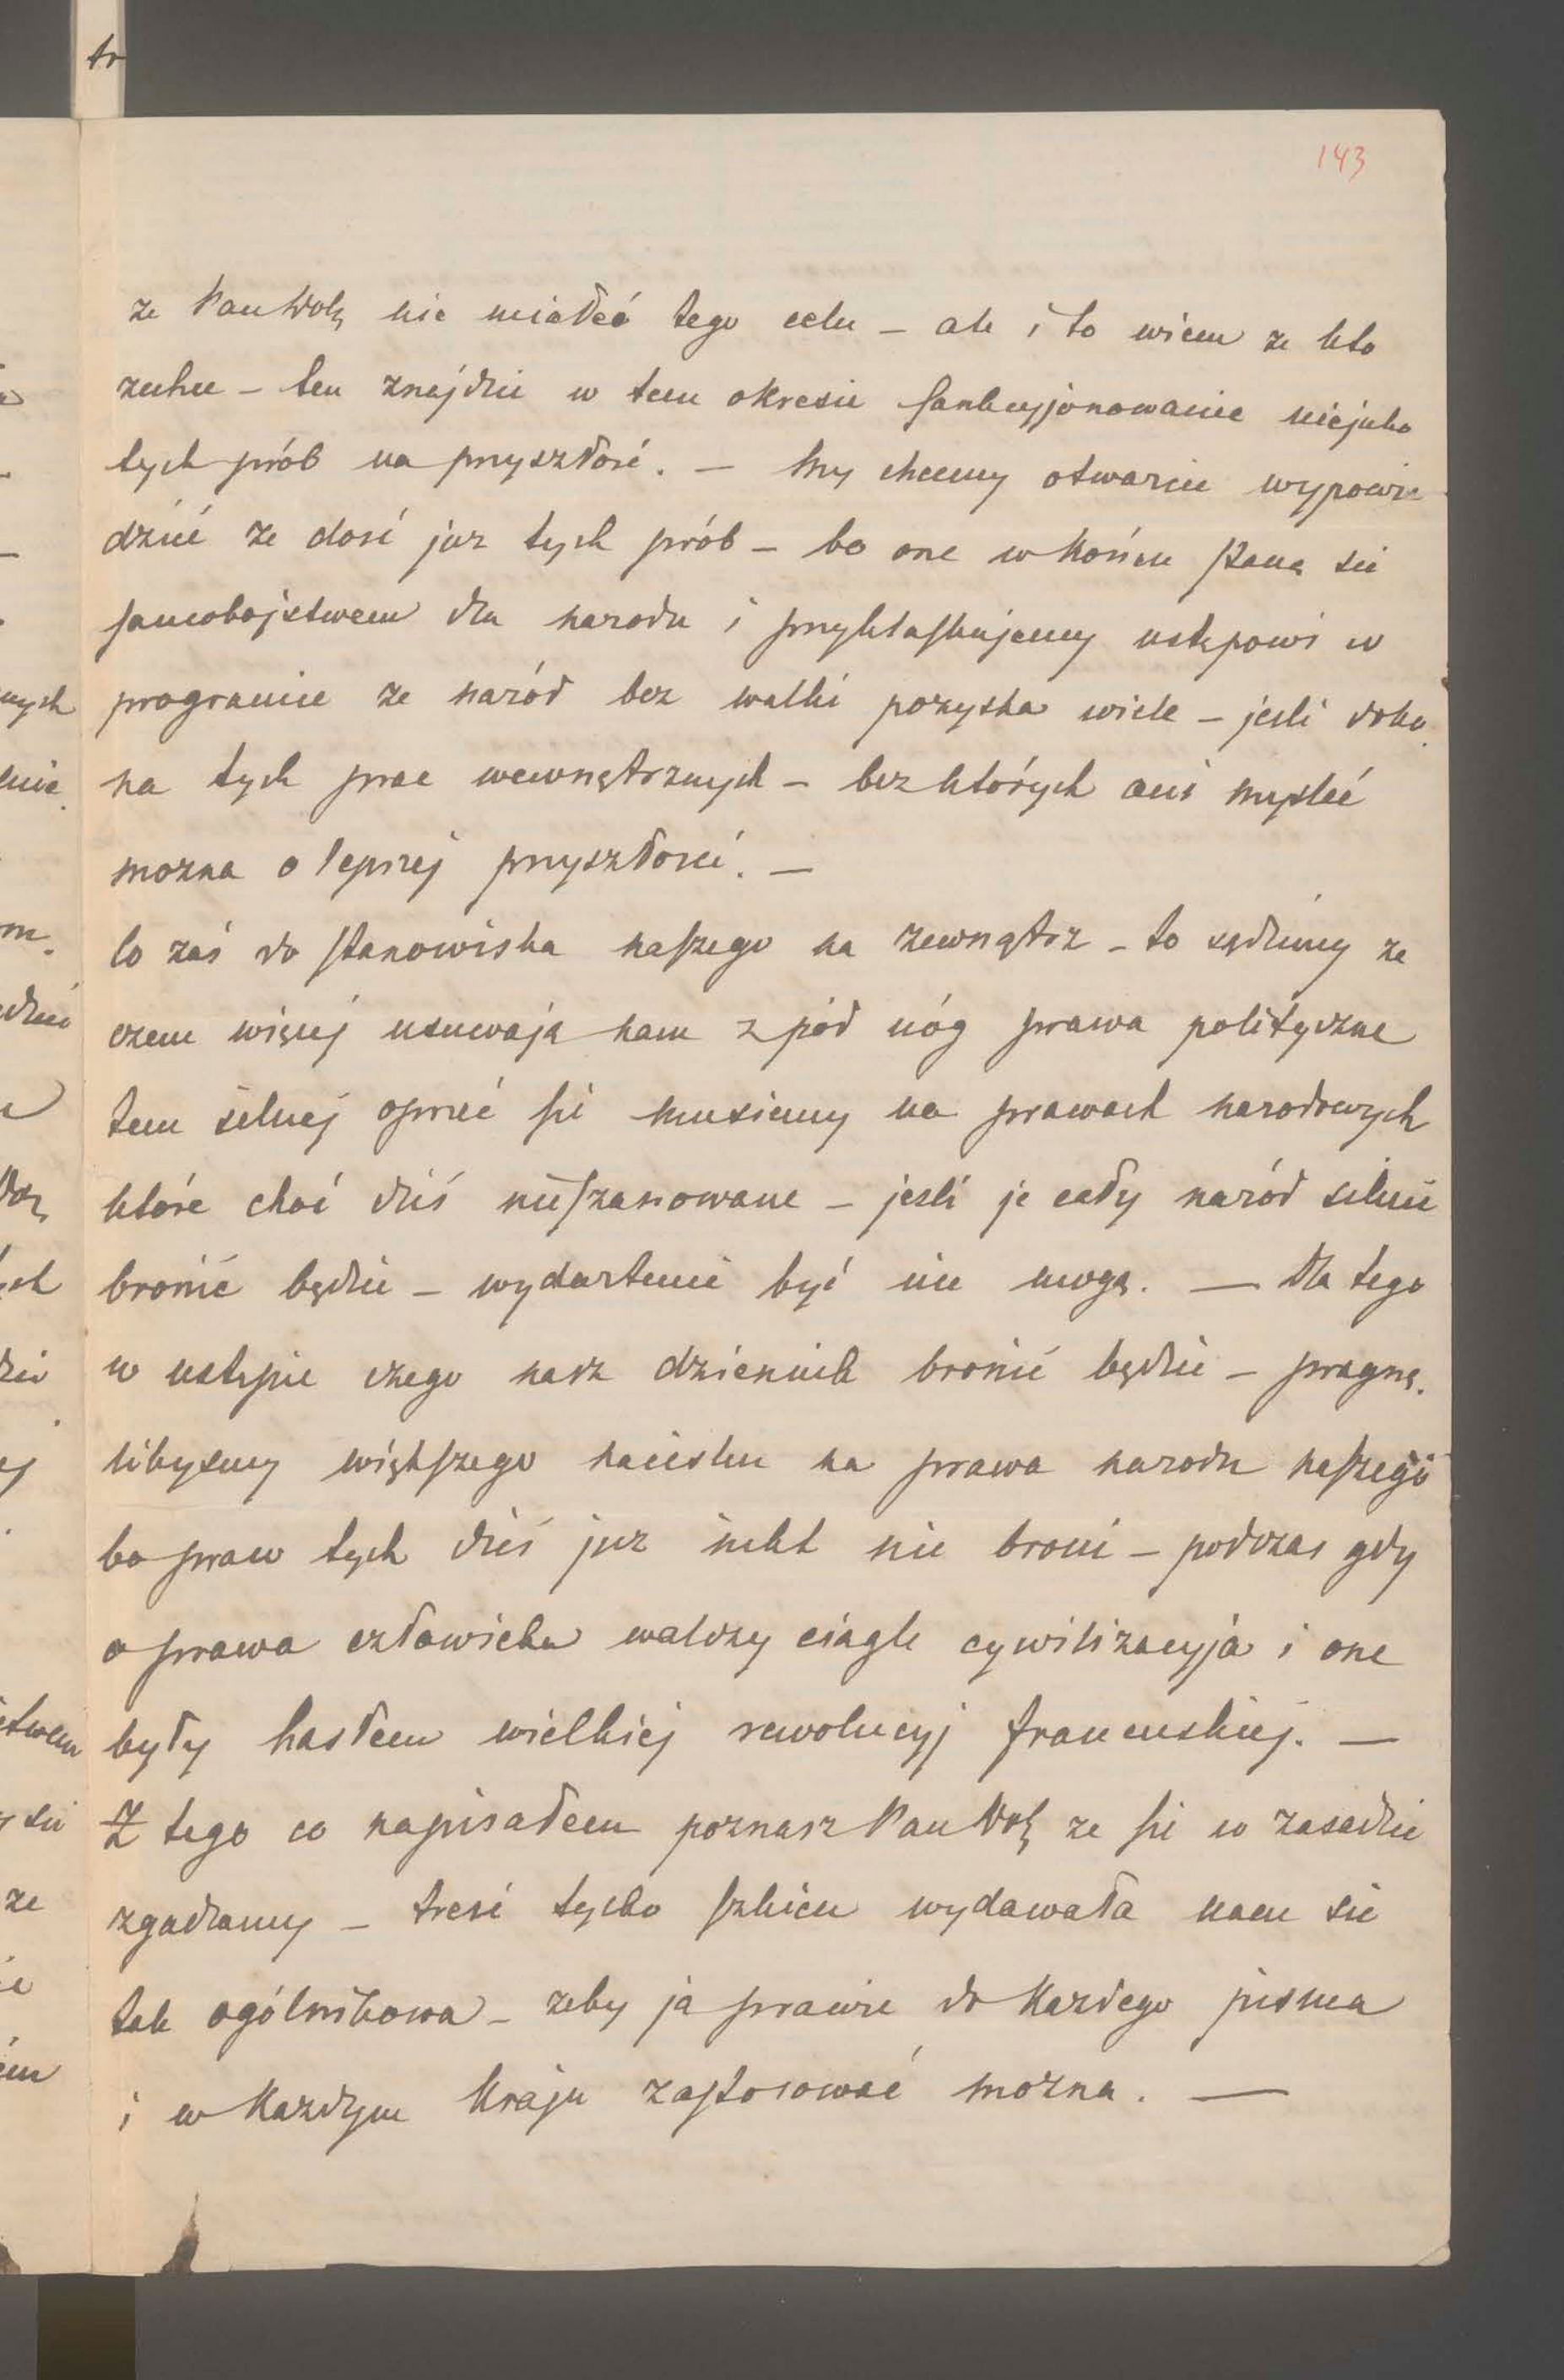 143
ze Pan Dobr. nie miałeś tego celu – ale i to wiem ze kto
zechce – ten znajdzie w tem okresie sankcyjonowanie niejako
tych prób na przyszłość. – My chcemy otwarcie wypowie
dzieć ze dosć juz tych prób – bo one w końcu staną sie
samobojstwem dla narodu i przyklaskujemy ustępowi w
programie ze naród bez walki pozyska wiele – jesli doko
na tych prac wewnętrznych – bez których ani mysleć
mozna o lepszej przyszłosci. –
Co zaś do stanowiska naszego na zewnątrz – to sądzimy ze
czem więcej usuwają nam z pód nóg prawa polityczne
tem silnej oprzeć sie musiemy na prawach narodowych
które choć dziś nieszanowane – jesli je cały naród silnie
bronić będzie – wydartemi być nie mogą. – Dla tego
w ustępie czego nasz dziennik bronić będzie – pragnę
libysmy większego nacisku na prawa narodu naszego
bo praw tych dziś juz nikt nie broni – podczas gdy
o prawa człowieka walczy ciągle cywilizacyja i one
były hasłem wielkiej rewolucyj francuskiej. –
Z tego co napisałem poznasz Pan Dobr. ze sie w zasadzie
zgadzamy – treść tylko szkicu wydawała nam sie
tak ogólnikowa – zeby ją prawie do kazdego pisma
i w kazdym kraju zastosować mozna. –